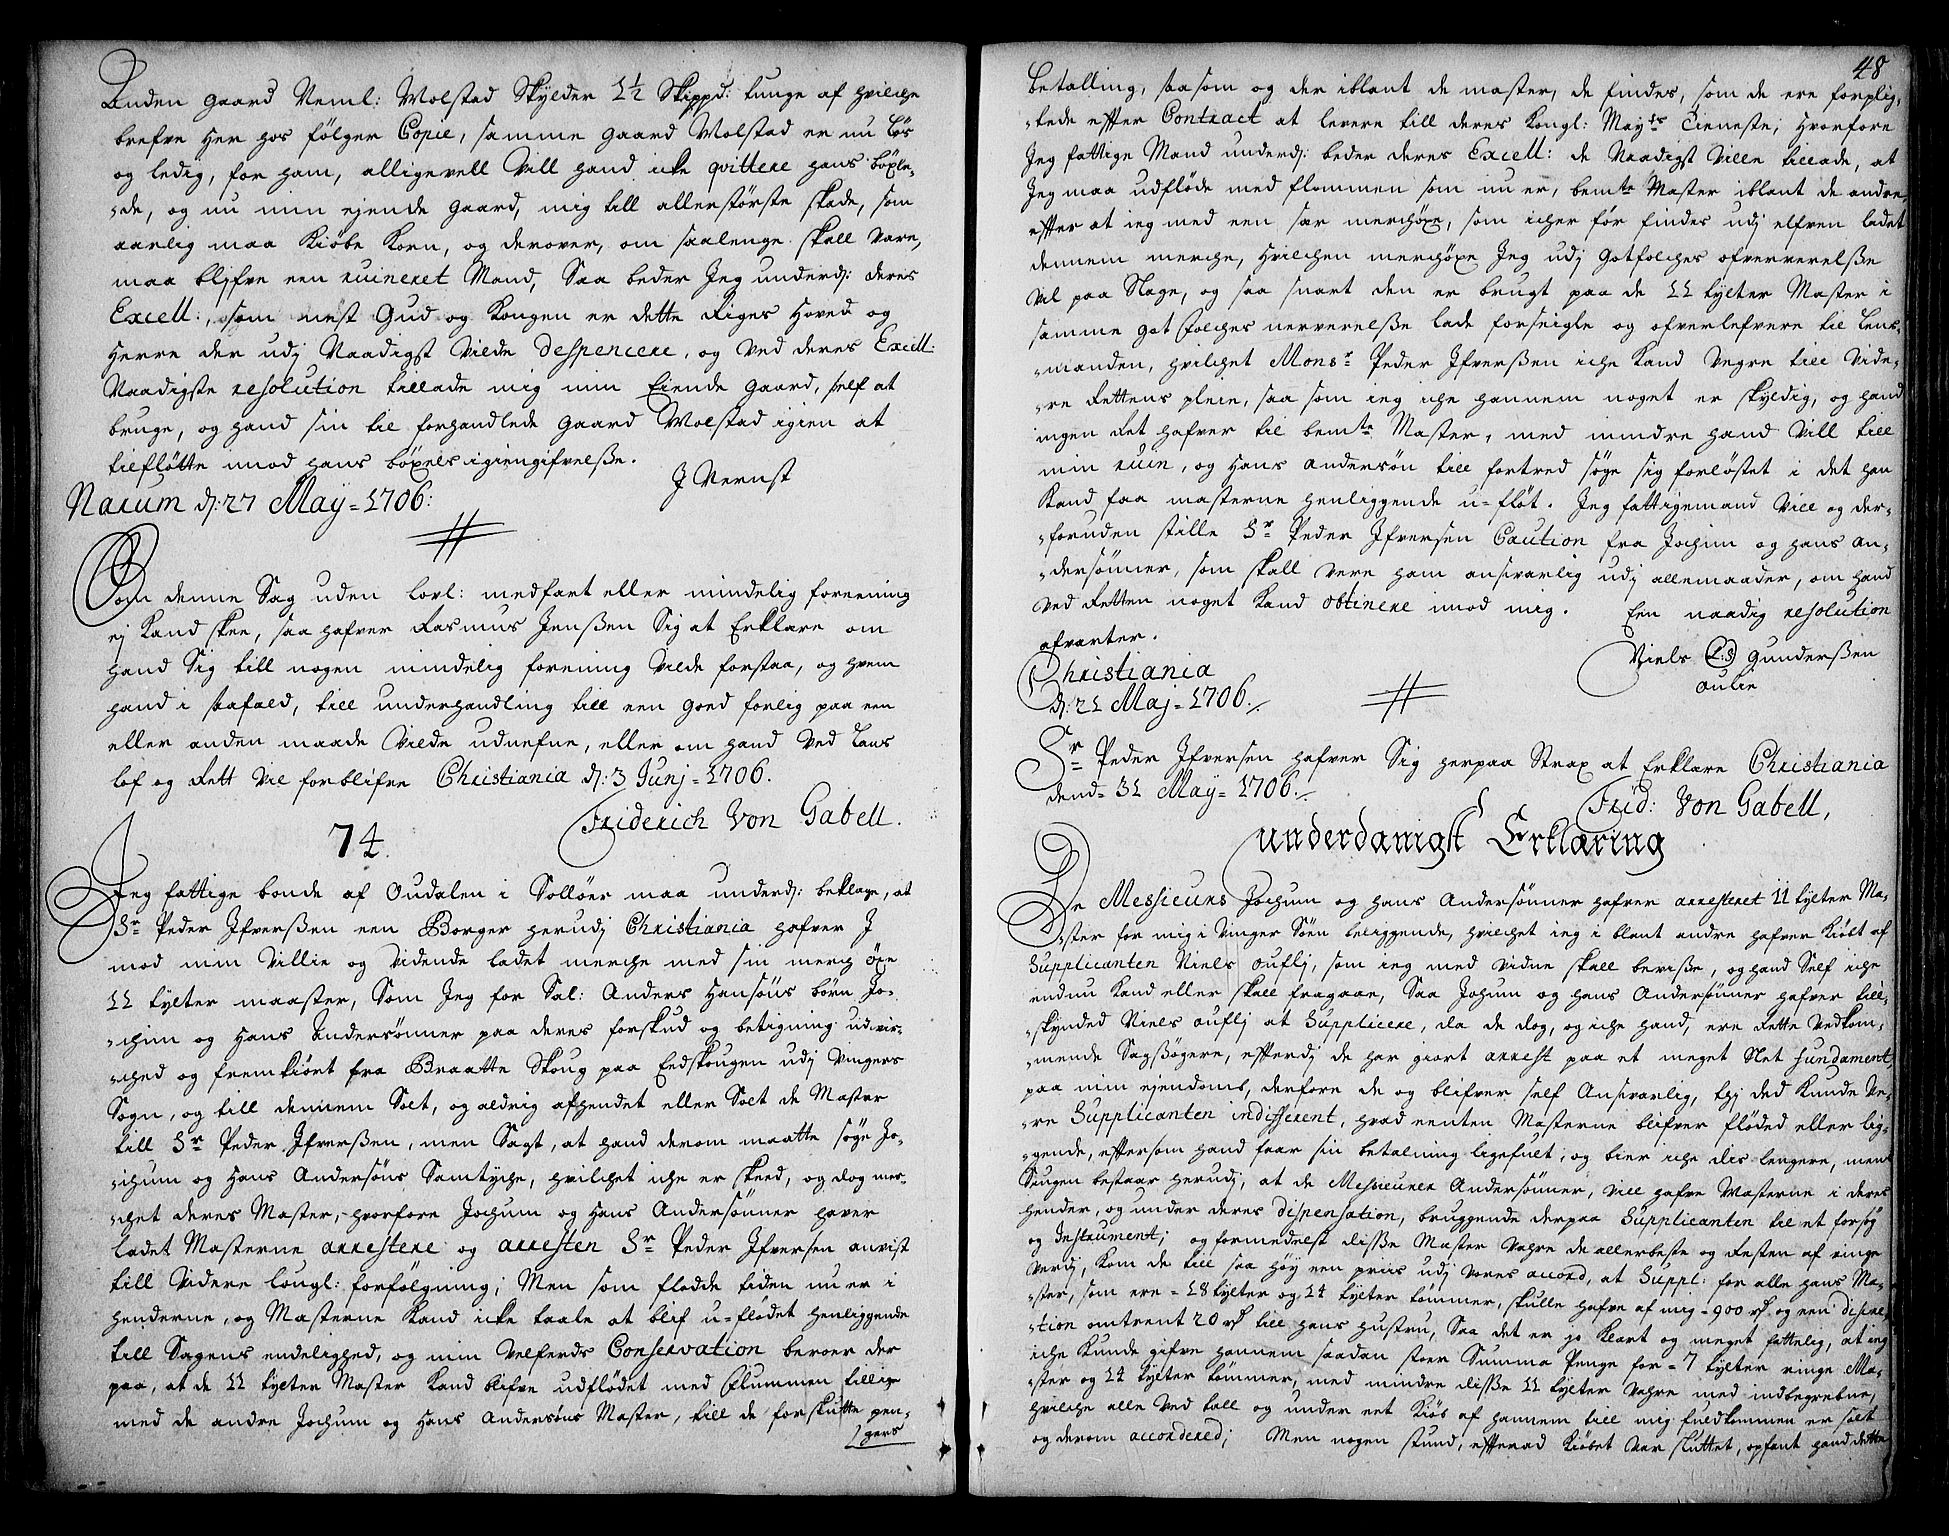 Anden gaard Neml: Wolstad Skylder 1½ Skippd: tunge af hvilche
brefve her hos følger Copie, samme gaard Wolstad er nu løs
og ledig, for ham, alligevell vill hand icke qvittere hans böxle-
:de, og nu min ejende gaard, mig till allerstörste skade, som
aarlig maa Kiöbe Korn, og derover, om saalenge skall vare,
maa blifve een ruineret Mand, Saa beder Jeg underd: deres
Excell:, som nest Gud og Kongen er dette Riges hoved og
Herre der udj Naadigst vilde despencere, og ved deres Excell:
Naadigste resolution tillade mig min Eiende gaard, self at
bruge, og hand sin til forhandlede gaard Wolstad igien at
tilfløtte imod hans böxels igiengifvelsse.
J Vernst
Narum d: 27 May = 1706:
Som denne Sag uden lovl: medfart eller mindelig foreening
ej kand skee, saa hafver Rasmus Jenssen Sig at Erklare om
hand Sig till nogen mindelig forening vilde forstaa, og hvem
hand i saafald, till underhandling till een goed forlig paa een
eller anden maade vilde udnefne, eller om hand ved Laus
lof og Rett vil forblifve Christiania d: 3 Junj = 1706.
Friderich Von Gabell.
74.
Jeg fattige bonde af Oudalen i Sollöer maa underd: beklage, at
Sr Peder Ifverssen een Borger herudj Christiania hafver J
mod min villie og vidende ladet merche med sin merch öxe
11 tylter maaster, Som Jeg for Sal: Anders Hansöns börn Jo-
:chim og Hans Andersönner paa deres forskud og betigning udvir-
:ched og fremkiört fra Braatte Skoug paa Eedskougen udj Vingers
Sogn, og till dennem Solt, og aldrig afhendet eller Solt de Master
till Sr Peder Ifverssen, men Sagt, at hand derom maatte söge Jo-
:chum og Hans Andersöns Samtyche, hvilchet iche er skeed, og dog mer-
:chet deres Master, hvorfore Jochum og Hans Andersönner haver
ladet Masterne arrestere og arresten Sr Peder Ifversen anvist
till videre lougl: forfölgning; Men som flodde tiden nu er i
henderne, og Masterne kand icke taale at blif u-flödet henliggende
till Sagens endelighed, og min velferds Conservation beroer der
paa, at de 11 tylter Master kand blifve udflödet med flummen tillige
med de andre Jochum og Hans Andersöns Master, till de forskutte pen-
gers
48
betalling, saasom og der iblant de master, de findes, som de ere forplig-
:tede efter Contract at levere till deres Kongl: Mayts tieneste; hvorfore
Jeg fattige Mand underd: beder deres Excell: de Naadigst ville tillade, at
Jeg maa udflöde med flommen som nu er, bemte Master iblant de andre,
efter at ieg med een sær merchöxe, som icher för findes udj elfven ladet
dennem merche, hvilchen merchöxe Jeg udj gotfolches ofververelsse
vil paa Slage, og saa snart den er brugt paa de 11 tylter Master i
samme gotfolches nerverelsse lade forseigle og ofverlefvere til Lens-
:manden, hvilchet Monsr Peder Ifverssen iche kand vegre till vide-
:re Rettens pleie, saa som ieg iche hannem noget er skyldig, og hand
ingen det hafver til bemte Master, med mindre hand vill till
min ruin, og Hans Andersön till fortred söge sig forlöstet i det han
kand faa masterne henliggende u-flöt. Jeg fattigemand vill og der-
:foruden stille Sr Peder Ifversen Caution fra Jochim og Hans An-
:dersönner, som skall vere ham ansvarlig udj allemaader, om hand
ved Retten noget kand obtinere imod mig. Een naadig resolution
afvarter.
Niels (L:S) Gunderssen
Oulie
Christiania
d: 21 Maj = 1706.
Sr Peder Ifversen hafver Sig herpaa Strax at Erklare Christiania
dend = 31 May = 1706.
Frid: Von Gabell,
Underdanigst Erklæring
De Messieurs Jochum og Hans Andersönner hafver arresteret 11 tylter Ma-
:ster for mig i Vinger Söen beliggende, hvilchet ieg i blant andre hafver Kiöbt af
Supplicanten Niels Ouflj, som ieg med vidne skall bevisse, og hand Self iche
endnu kand eller skall fragaae, Saa Jochum og Hans Andersönner hafver till-
:skynded Niels Ouflj at Supplicere, da de dog, og iche hand, ere Rette vedkom-
:mende Sagssögere, efterdj de har giort arrest paa et meget slet fundament,
paa min ejendomb, derfore de og blifver self Ansvarlig, thj det kunde ve-
:re Supplicanten indifferent, hvad enten Masterne blifver flöded eller lig-
:gende, eftersom hand faar sin betalning ligefult, og bier iche dis lengere, men
Sagen bestaar herudj, at de Messieurer Andersönner, vill hafve Masterne i deres
hender, og under deres dispensation, bruggende derpaa Supplicanten til et forsög
og Instrument; og formedelst disse Master vahre de allerbeste og Resten af ringe
verdj, kom de till saa höy een priis udj vores accord, at Suppl: for alle hans Ma-
:ster, som ere = 18 tylter og 14 tylter tömmer, skulle hafve af mig = 900 rd og een discre-
:tion omtrent 20 rd till hans hustru, Saa det er jo klart og meget fattelig, at ieg
iche kunde gifve hannem saadan stoer Summa Penge for = 7 tylter ringe Ma-
:ster og 14 tylter tömmer, med mindre disse 11 tylter vahre med indbegrebne,
hvilche alle ved tall og under eet Kiöb af hannem till mig fuldkommen er solt
og derom accordered; Men nogen stund, efterad Kiöbet var sluttet, opfant hand dette